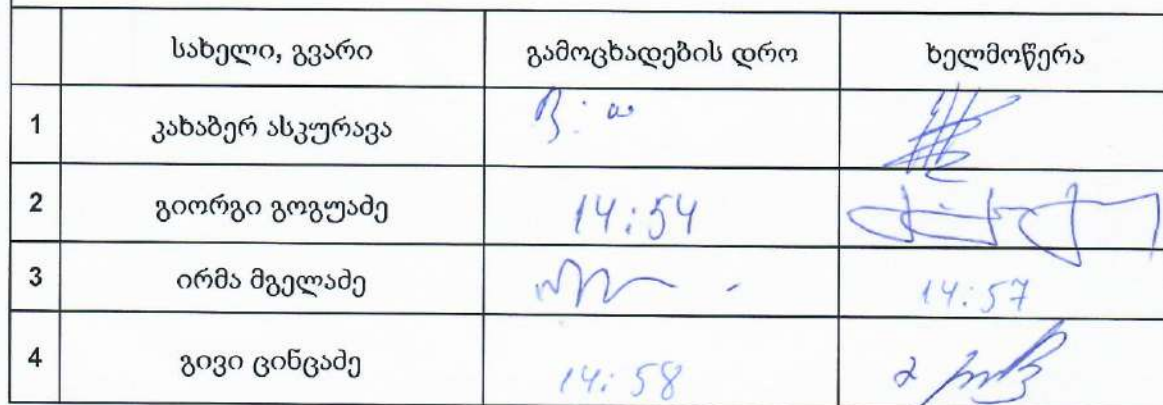 სახელი, გვარი გამოცხადების დრო ხელმოწერა
1 კახაბერ ასკურავა
2 გიორგი გოგუაძე 14:54
3 ირმა მგელაძე 14:57
4 გივი ცინცაძე 14:58